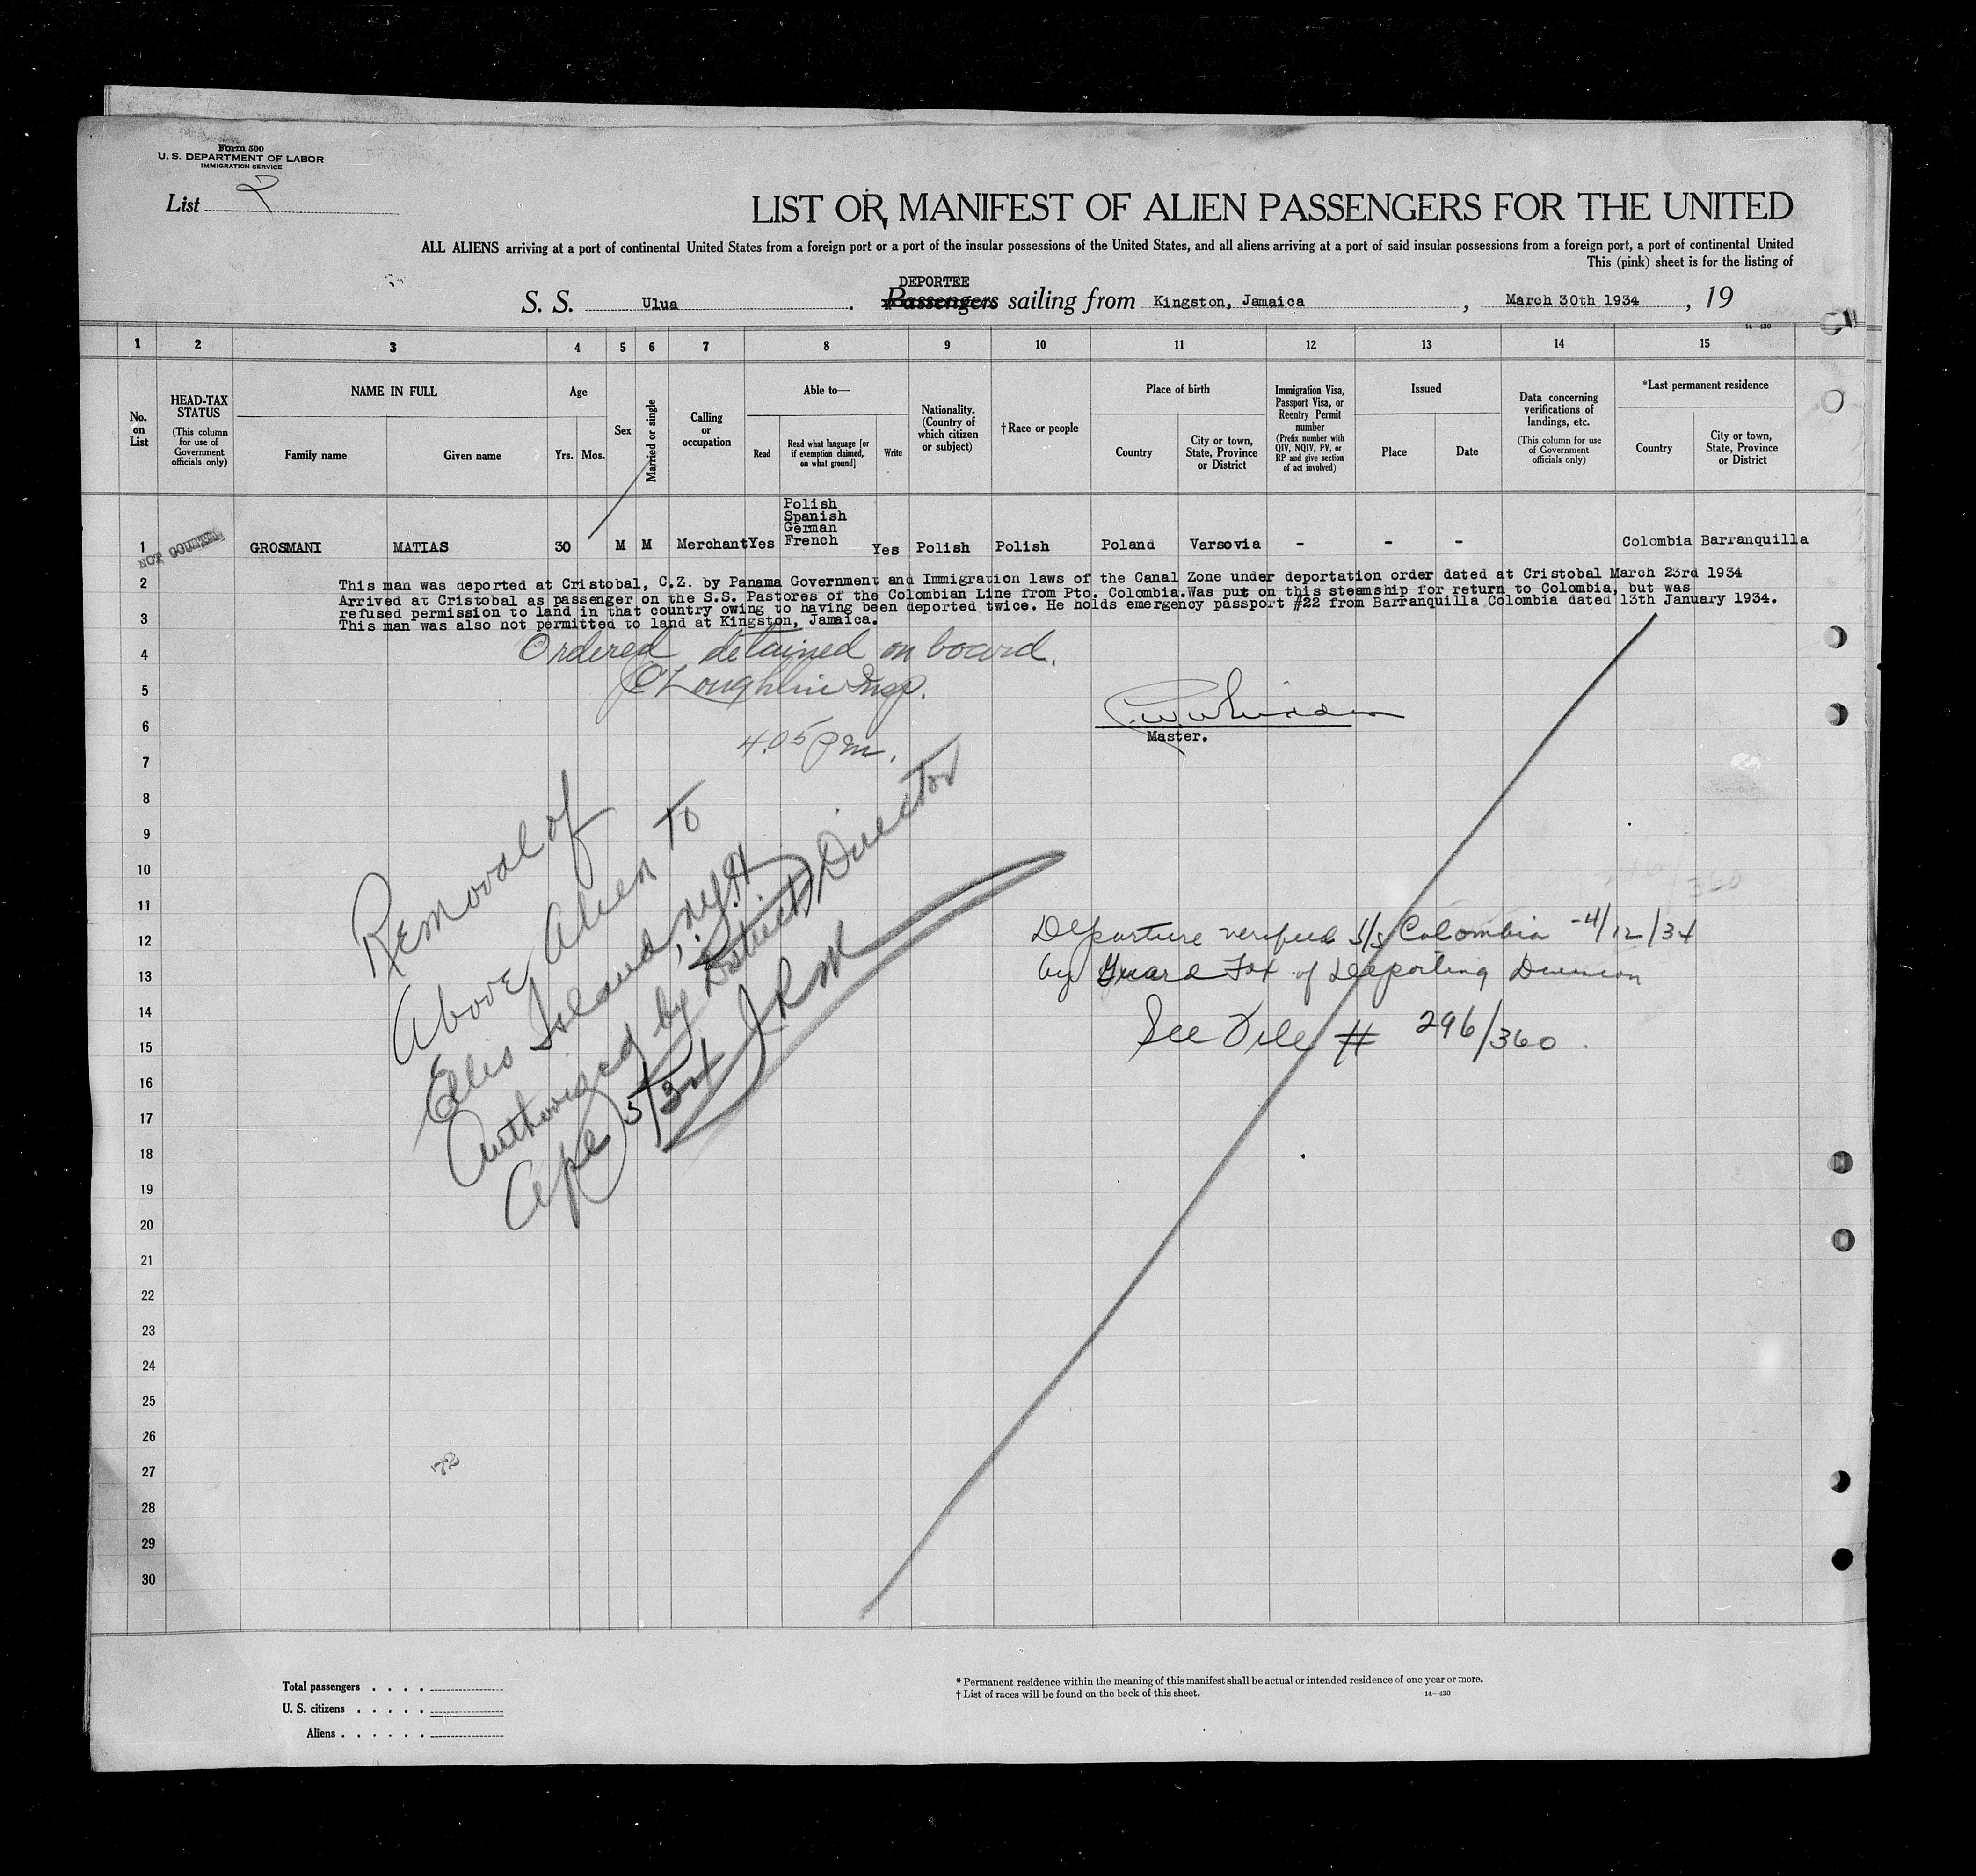 Form 500
U. S. DEPARTMENT OF LABOR
IMMIGRATION SERVICE
List 2
LIST OR MANIFEST OF ALIEN PASSENGERS FOR THE UNITED
ALL ALIENS arriving at a port of continental United States from a foreign port or a port of the insular possessions of the United States, and all aliens arriving at a port of said insular possessions from a foreign port, a port of continental United
This (pink) sheet is for the listing of
DEPORTEE
S. S. Ulua. Passengers sailing from Kingston, Jamaica, March 30th 1934, 19
14—430
1 2 3 4 5 6 7 8 9 10 11 12 13 14 15
No. on List
HEAD-TAX STATUS
(This column for use of Government officials only)
NAME IN FULL
Family name
Given name
Age
Yrs. Mos.
Sex
Married or single
Calling or occupation
Able to—
Read
Read what language [or if exemption claimed, on what ground]
Write
Nationality. (Country of which citizen or subject)
†Race or people
Place of birth
Country
City or town, State, Province or District
Immigration Visa, Passport Visa, or Reentry Permit number
(Prefix number with QIV, NQIV, PV, or RP and give section of act involved)
Issued
Place
Date
Data concerning verifications of landings, etc.
(This column for use of Government officials only)
*Last permanent residence
Country
City or town, State, Province or District
Polish
Spanish
German
1 NOT COUNTED GROSMANI MATIAS 30 M M Merchant Yes French Yes Polish Polish Poland Varsovia - - - Colombia Barranquilla
2 This man was deported at Cristobal, C.Z. by Panama Government and Immigration laws of the Canal Zone under deportation order dated at Cristobal March 23rd 1934
Arrived at Cristobal as passenger on the S.S. Pastores of the Colombian Line from Pto. Colombia.Was put on this steamship for return to Colombia, but was
3 refused permission to land in that country owing to having been deported twice. He holds emergency passport #22 from Barranquilla Colombia dated 13th January 1934.
This man was also not permitted to land at Kingston, Jamaica.
4 Ordered detained on board.
5 O'Loughlin Insp.
6
Master.
4.05 pm.
7
8
9
10
11
12
13
14
15
16
17
18
19
20
21
22
23
24
25
26
27
28
29
30
Removal of
Above Alien to
Ellis Island, N.Y.H
Authorized by District Director
Apl 5/34 JRM
Departure verified S/S Colombia -4/12/34
by Guard Fox of Deporting Division
See File # 296/360.
72
Total passengers . . . .
U. S. citizens . . . . .
Aliens . . . . . .
* Permanent residence within the meaning of this manifest shall be actual or intended residence of one year or more.
† List of races will be found on the back of this sheet.
14—430